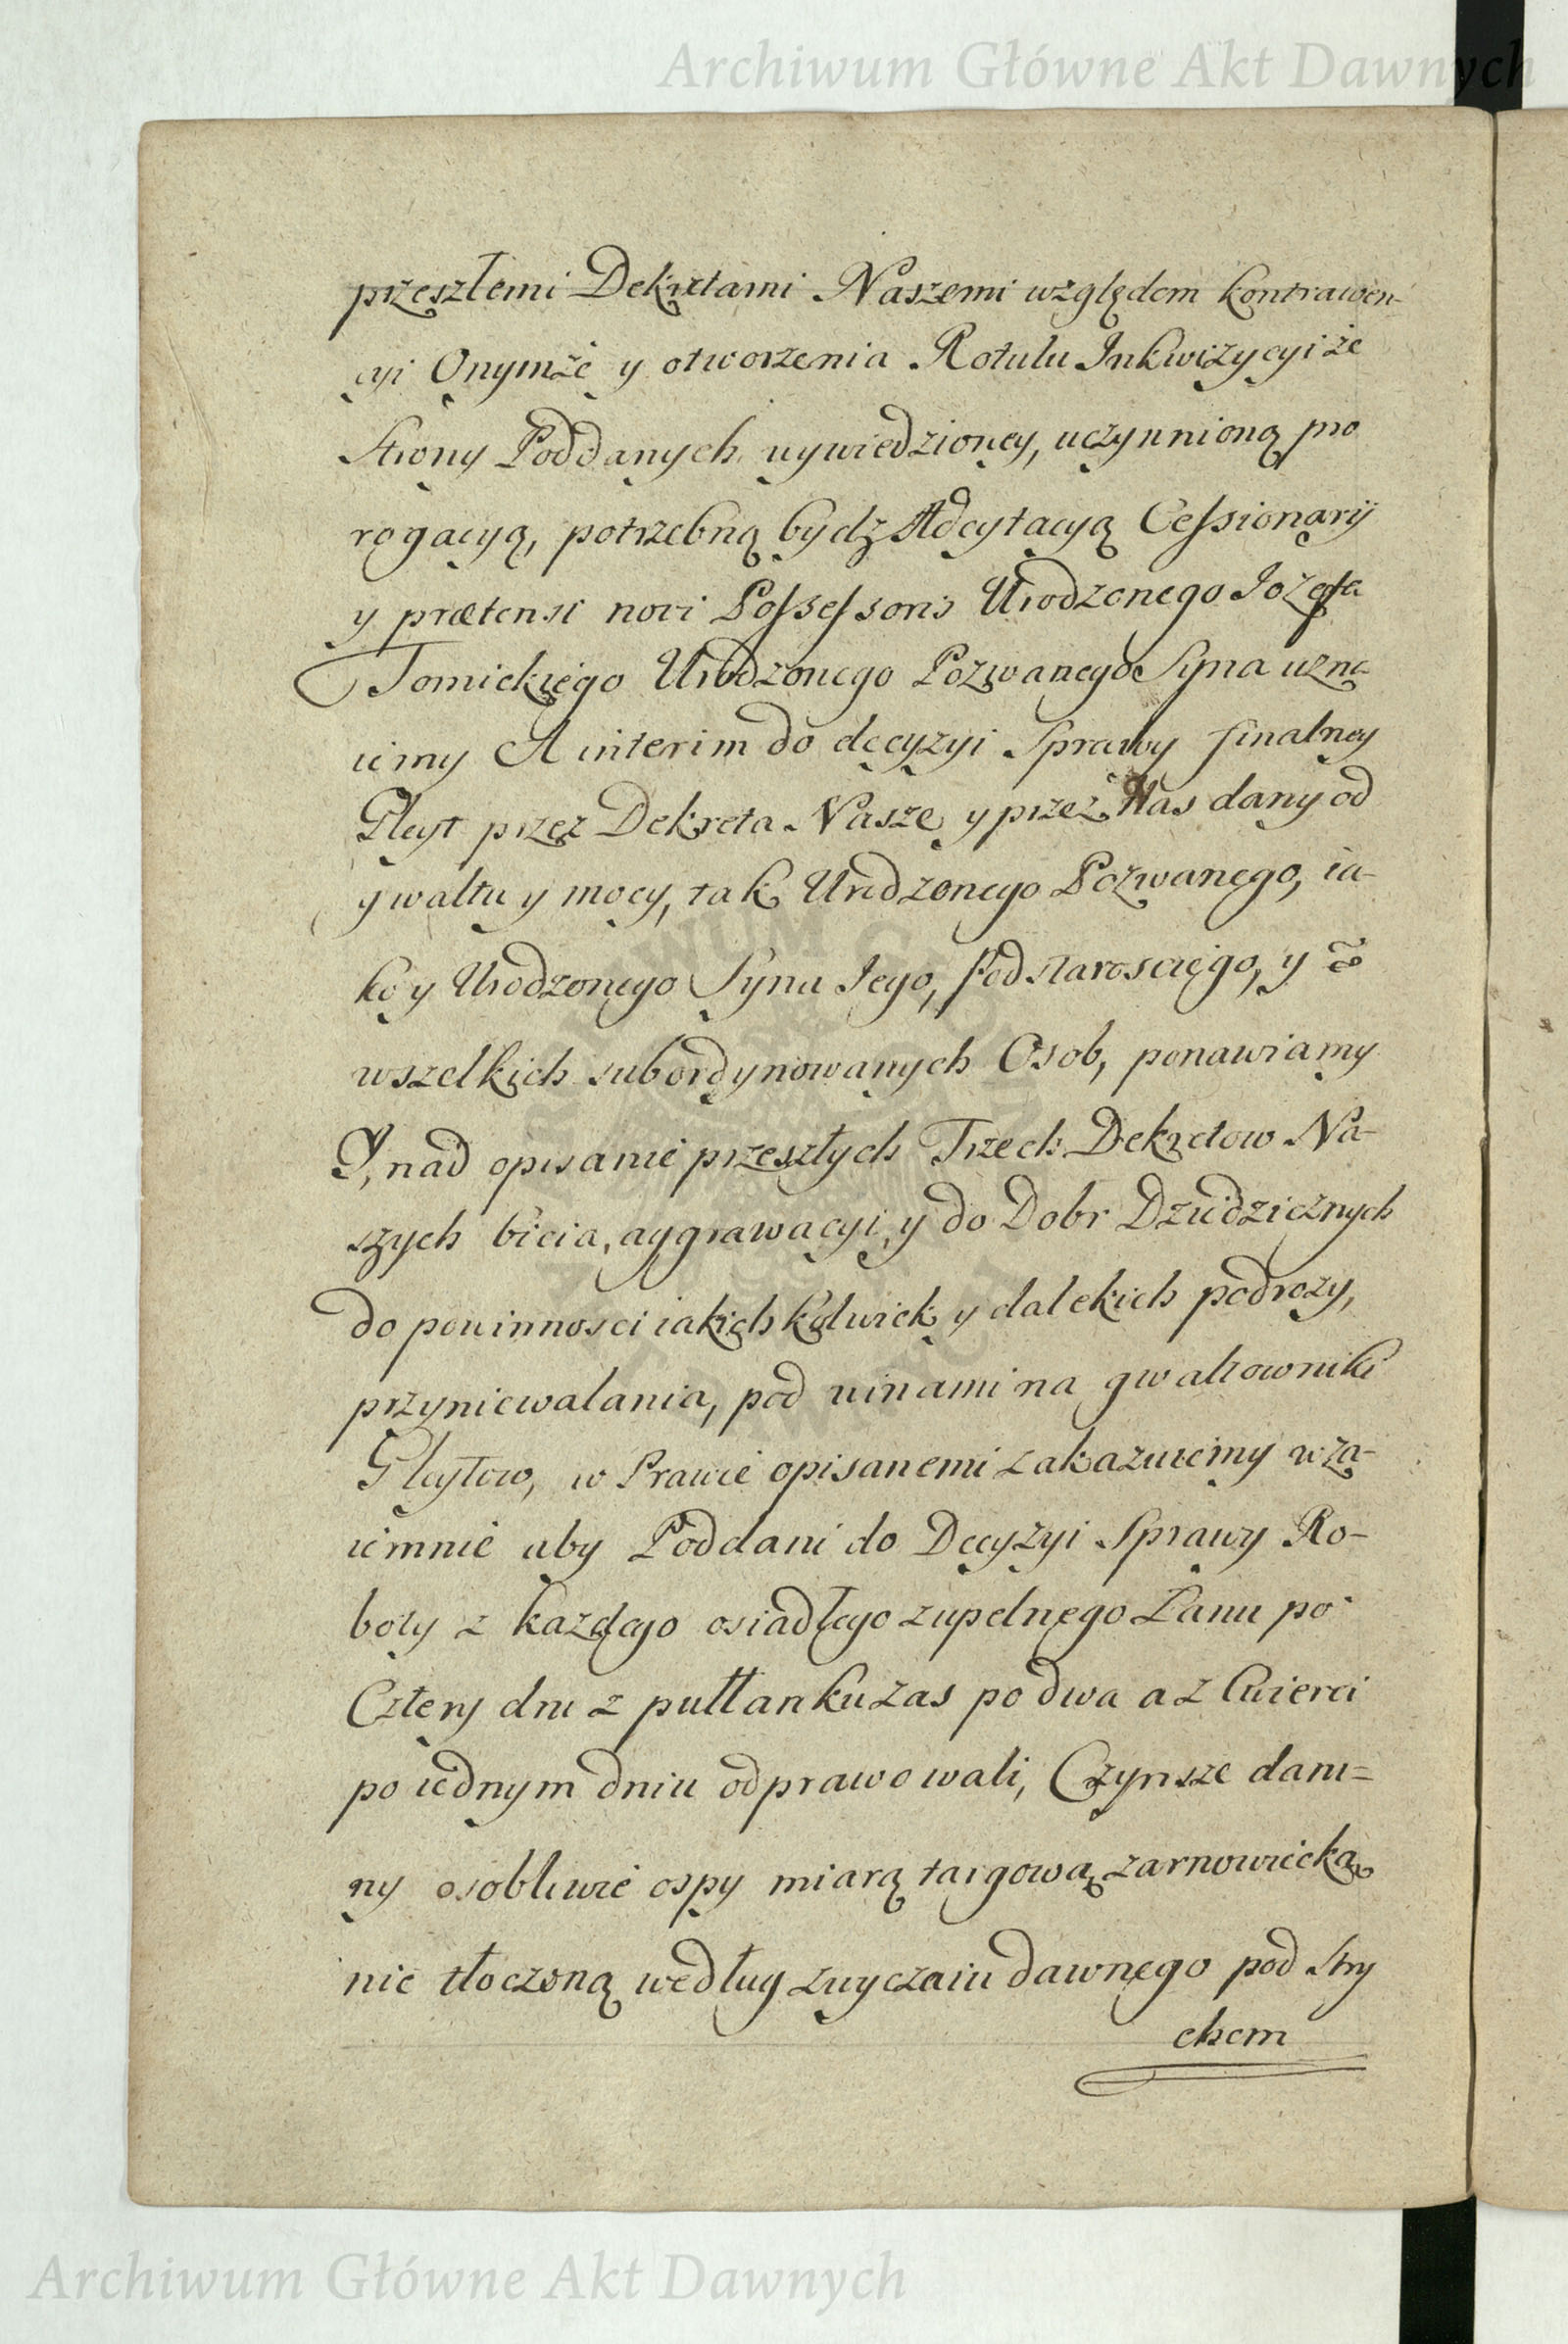 Archiwum Główne Akt Dawnych
przeszłemi Dekretami Naszemi względem kontrawen-
cyi Onymże y otworzenia Rotulu Inkwizycyi ze
Strony Poddanych wywiedzioney, uczynnioną pro
rogacyą, potrzebną bydz Adcytacyą Cessionarij
y prætensi novi Possessoris Urodzonego Jozefa
Tomickiego Urodzonego Pozwanego Syna uzna
iemy A interim do decyzyi Sprawy finalney
Gleyt przez Dekreta Nasze y przez Nas dany od
gwałtu y mocy, tak Urodzonego Pozwanego, ia-
ko y Urodzonego Syna Jego, Podstarosciego, y
wszelkich subordynowanych Osob, ponawiamy
Y, nad opisanie przeszłych Trzech Dekretow Na-
szych bicia, aggrawacyi, y do Dobr Dziedzicznych
do powinnosci iakichkolwiek y dalekich podrozy,
przyniewalania, pod winami na gwałtowniki
Gleytow, w Prawie opisanemi zakazuiemy wza-
iemnie aby Poddani do Decyzyi Sprawy Ro-
boty z kazdego osiadłego zupelnego Łanu po
Cztery dni z pułłanku zas po dwa a z Cwierci
po iednym dniu odprawowali, Czynsze dani=
ny osobliwie ospy miarą targową zarnowiecką
nie tłoczoną według zwyczaiu dawnego pod stry
chem
Archiwum Główne Akt Dawnych